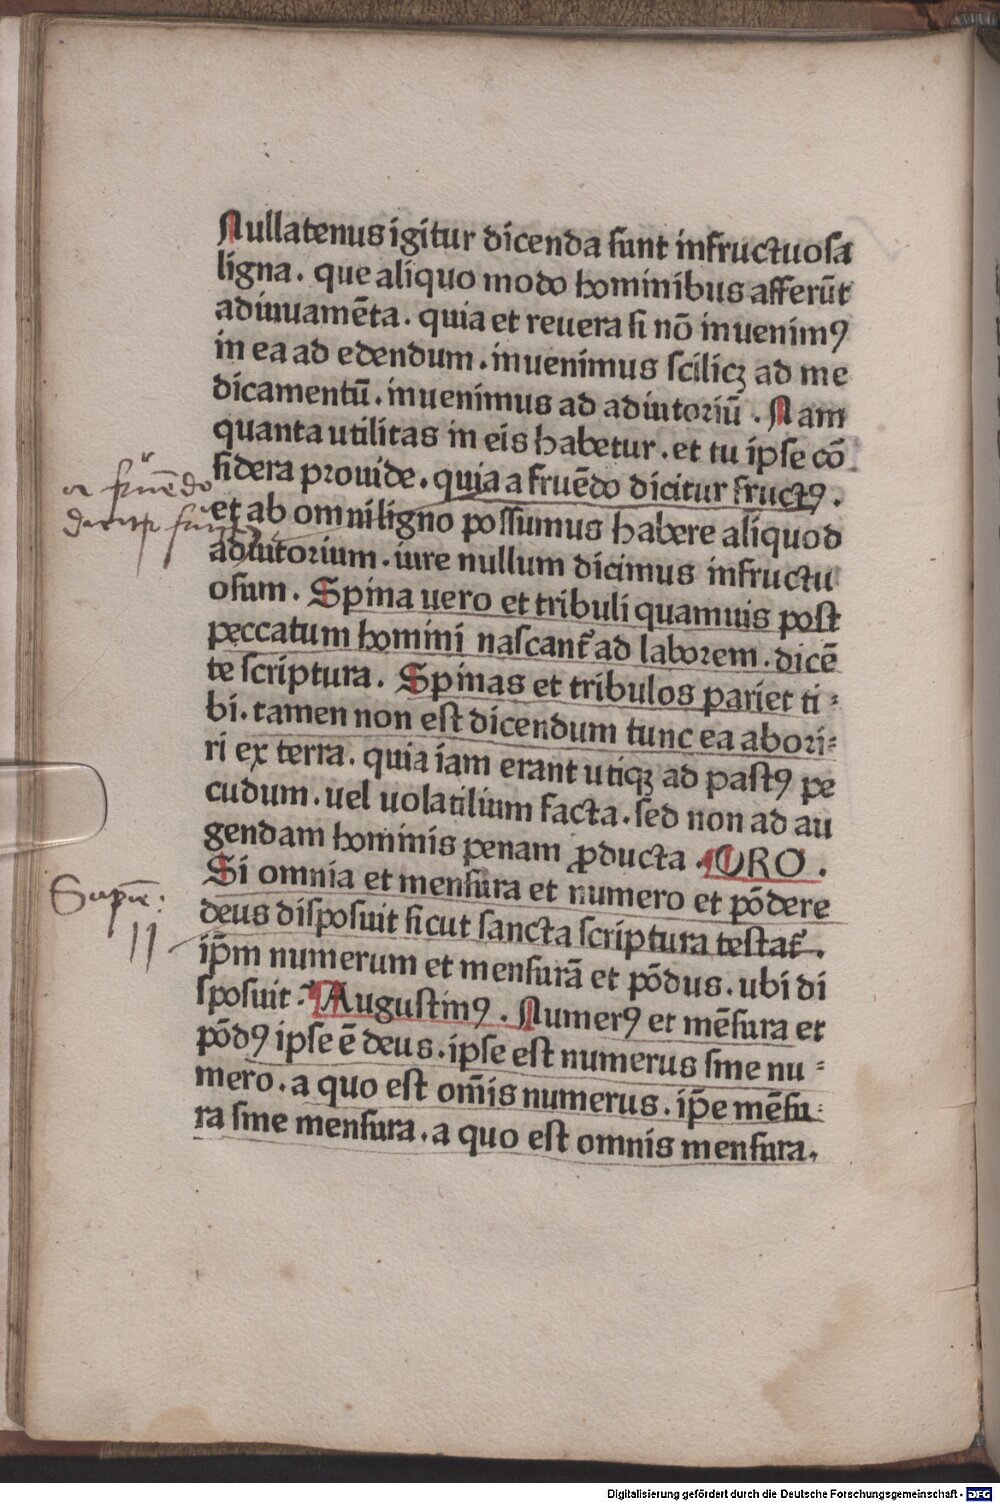 Nullatenus igitur dicenda sunt infructuosa
ligna. que aliquo modo hominibus afferūt
adiuuamēta. quia et reuera si nō inuenimꝰ
in ea ad edendum. inuenimus scilicꝫ ad me
dicamentū. inuenimus ad adiutoriū. Nam
quanta utilitas in eis habetur. et tu ipse cō
sidera prouide. quia a fruēdo dicitur fructꝰ.
et ab omni ligno possumus habere aliquod
adiutorium. iure nullum dicimus infructu
osum. Spina uero et tribuli quamuis post
peccatum homini nascant̃ ad laborem. dicē
te scriptura. Spinas et tribulos pariet ti-
bi. tamen non est dicendum tunc ea abori-
ri ex terra. quia iam erant utiqꝫ ad pastꝰ pe
cudum. uel uolatilium facta. sed non ad au
gendam hominis penam ꝓducta. ORO.
Si omnia et mensura et numero et pōdere
deus disposuit sicut sancta scriptura testat̃.
ip̄m numerum et mensurā et pōdus. ubi di
sposuit? Augustinꝰ. Numerꝰ et mēsura et
pōdꝰ ipse ē deus. ipse est numerus sine nu-
mero. a quo est om̄is numerus. ip̄e mēsu-
ra sine mensura. a quo est omnis mensura.
a fruēdo
dicitur
Sapiē:
11
Digitalisierung gefördert durch die Deutsche Forschungsgemeinschaft - DFG